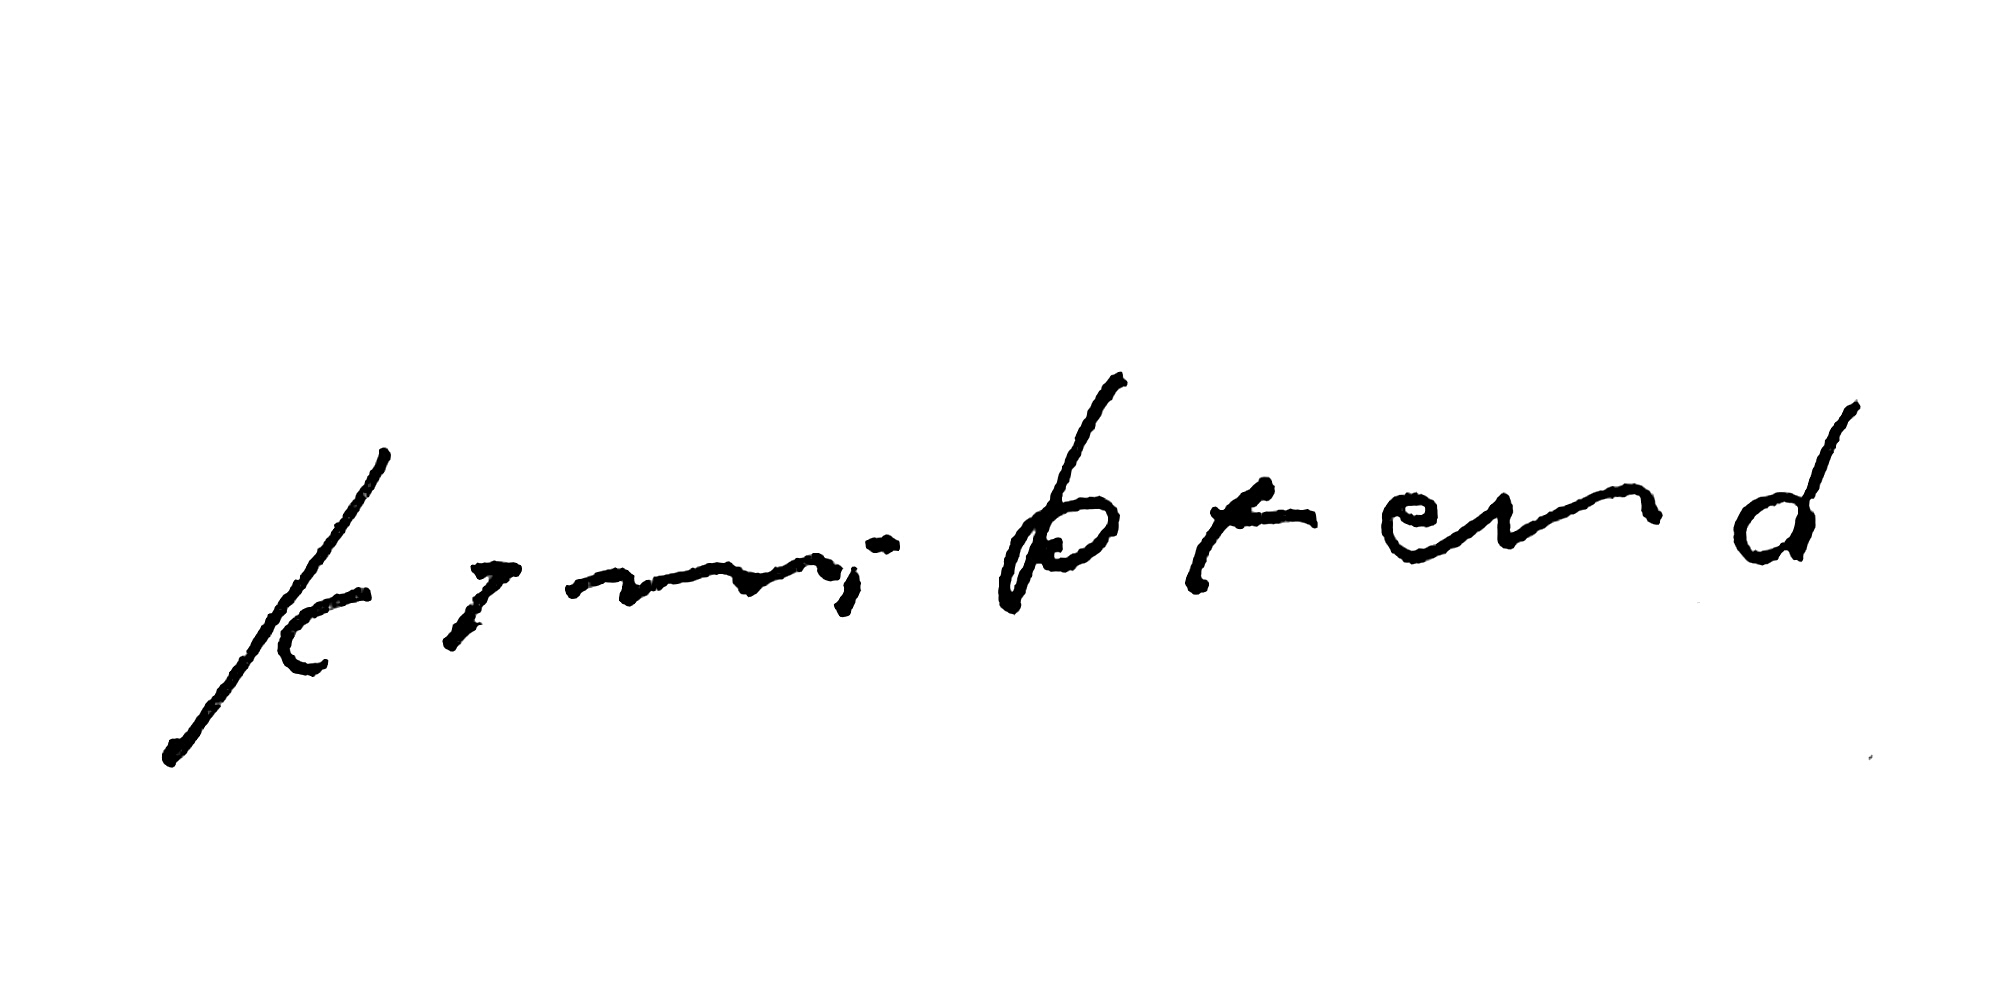 kimi brend